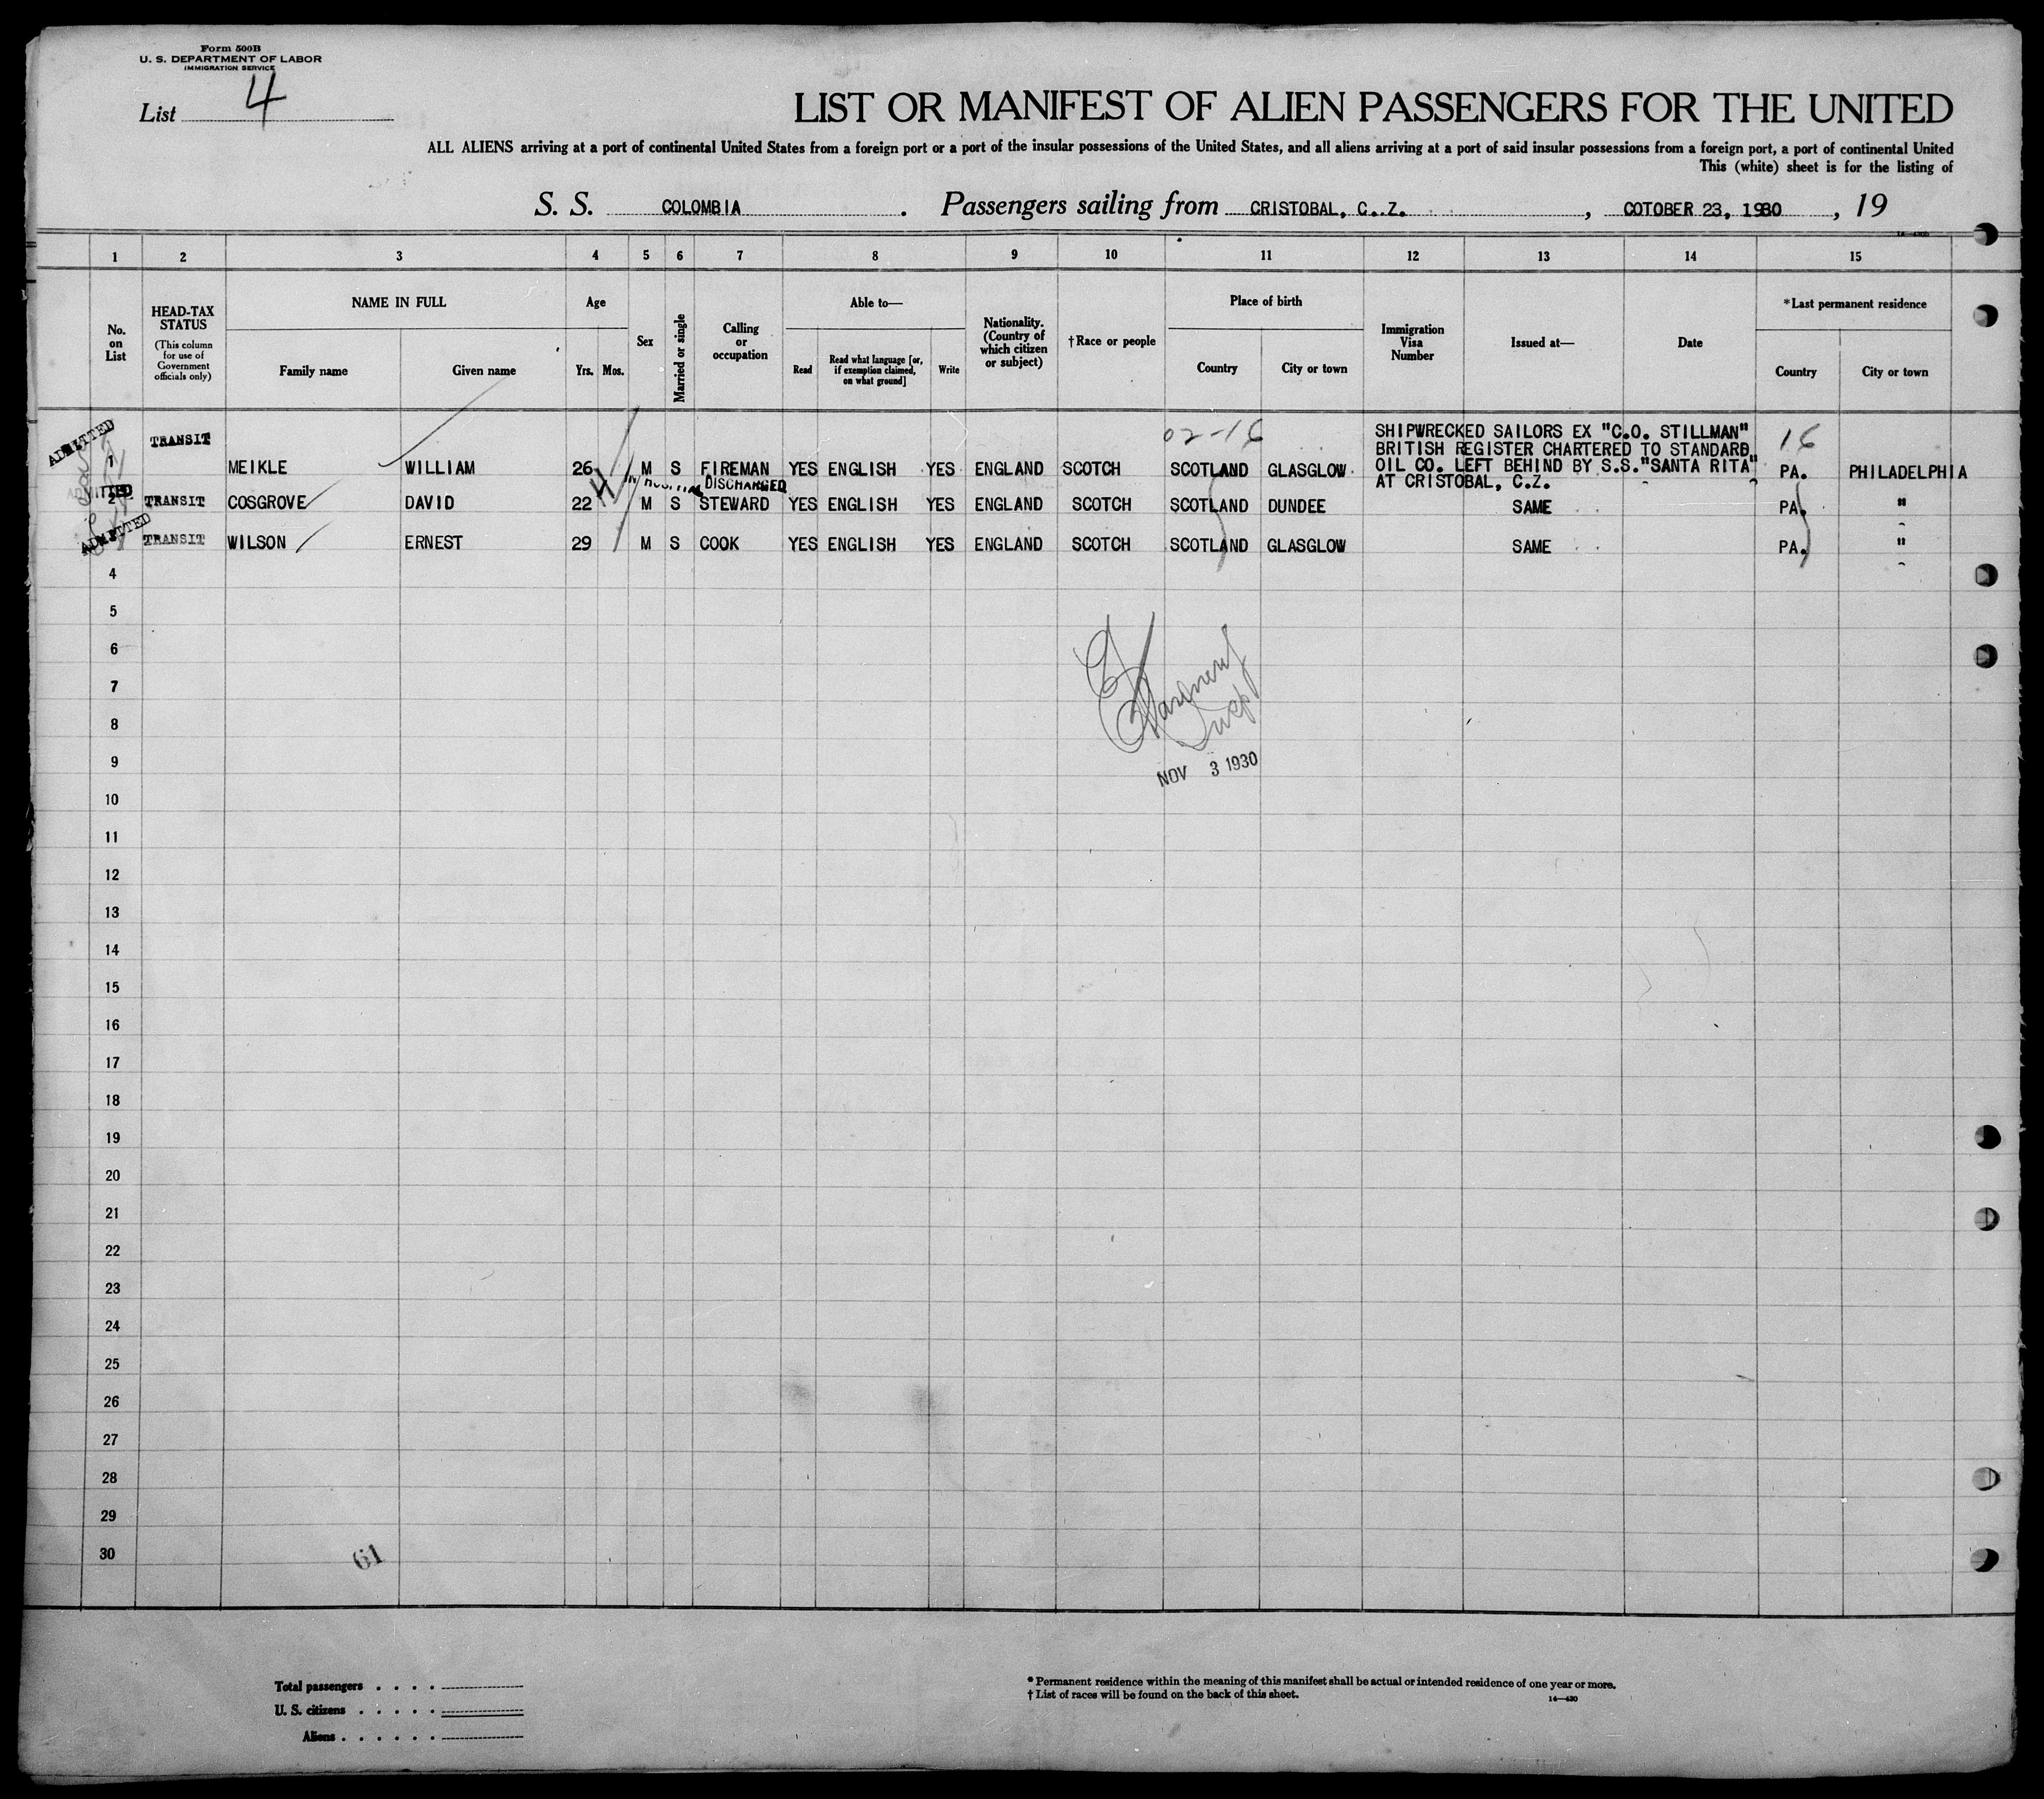 Form 500B
U. S. DEPARTMENT OF LABOR
IMMIGRATION SERVICE
List 4
LIST OR MANIFEST OF ALIEN PASSENGERS FOR THE UNITED
ALL ALIENS arriving at a port of continental United States from a foreign port or a port of the insular possessions of the United States, and all aliens arriving at a port of said insular possessions from a foreign port, a port of continental United
This (white) sheet is for the listing of
S. S. COLOMBIA. Passengers sailing from CRISTOBAL, C. Z. , COTOBER 23, 1930 , 19
1 2 3 4 5 6 7 8 9 10 11 12 13 14 15
No. on List
HEAD-TAX STATUS
(This column for use of Government officials only)
NAME IN FULL
Family name Given name
Age
Yrs. Mos.
Sex
Married or single
Calling or occupation
Able to—
Read
Read what language [or, if exemption claimed, on what ground]
Write
Nationality. (Country of which citizen or subject)
†Race or people
Place of birth
Country City or town
Immigration Visa Number
Issued at—
Date
*Last permanent residence
Country City or town
02-16
16
SHIPWRECKED SAILORS EX "C.O. STILLMAN"
BRITISH REGISTER CHARTERED TO STANDARD
OIL CO. LEFT BEHIND BY S.S."SANTA RITA"
AT CRISTOBAL, C.Z.
ADMITTED 1 TRANSIT MEIKLE WILLIAM 26 M S FIREMAN YES ENGLISH YES ENGLAND SCOTCH SCOTLAND GLASGLOW PA. PHILADELPHIA
IN HOSPITAL DISCHARGED
ADMITTED 2 TRANSIT COSGROVE DAVID 22 M S STEWARD YES ENGLISH YES ENGLAND SCOTCH SCOTLAND DUNDEE SAME PA. "
ADMITTED TRANSIT WILSON ERNEST 29 M S COOK YES ENGLISH YES ENGLAND SCOTCH SCOTLAND GLASGLOW SAME PA. "
4
5
6
7
8
9
NOV 3 1930
10
11
12
13
14
15
16
17
18
19
20
21
22
23
24
25
26
27
28
29
30
61
Total passengers . . . .
U. S. citizens . . . . .
Aliens . . . . . .
* Permanent residence within the meaning of this manifest shall be actual or intended residence of one year or more.
† List of races will be found on the back of this sheet.
14—430